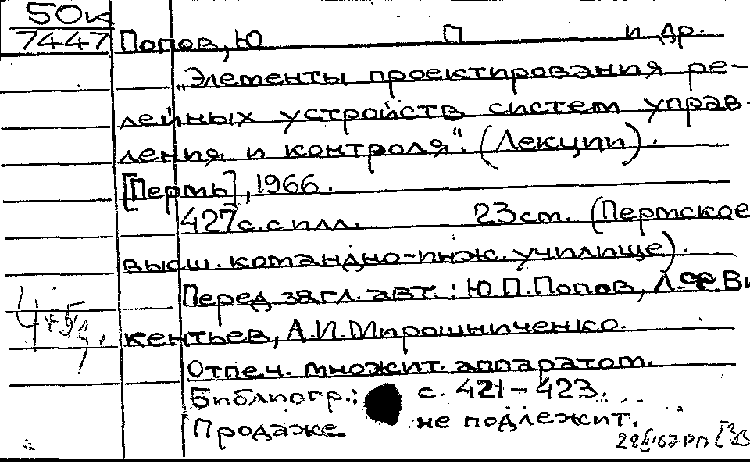 50к
7447 Попов, Ю П и др.
„Элементы проектирования ре-
лейных устройств систем управ-
ления и контроля“. (Лекции).
[Пермь], 1966.
427с. с илл. 23 см. (Пермское
высш. командно-инж. училище).
Перед загл. авт.: Ю.П. Попов, Л.Ф. Ви
кентьев, А.И. Мирошниченко.
Отпеч. множит. аппаратом.
Библиогр.: с. 421-423.
Продаже не подлежит.